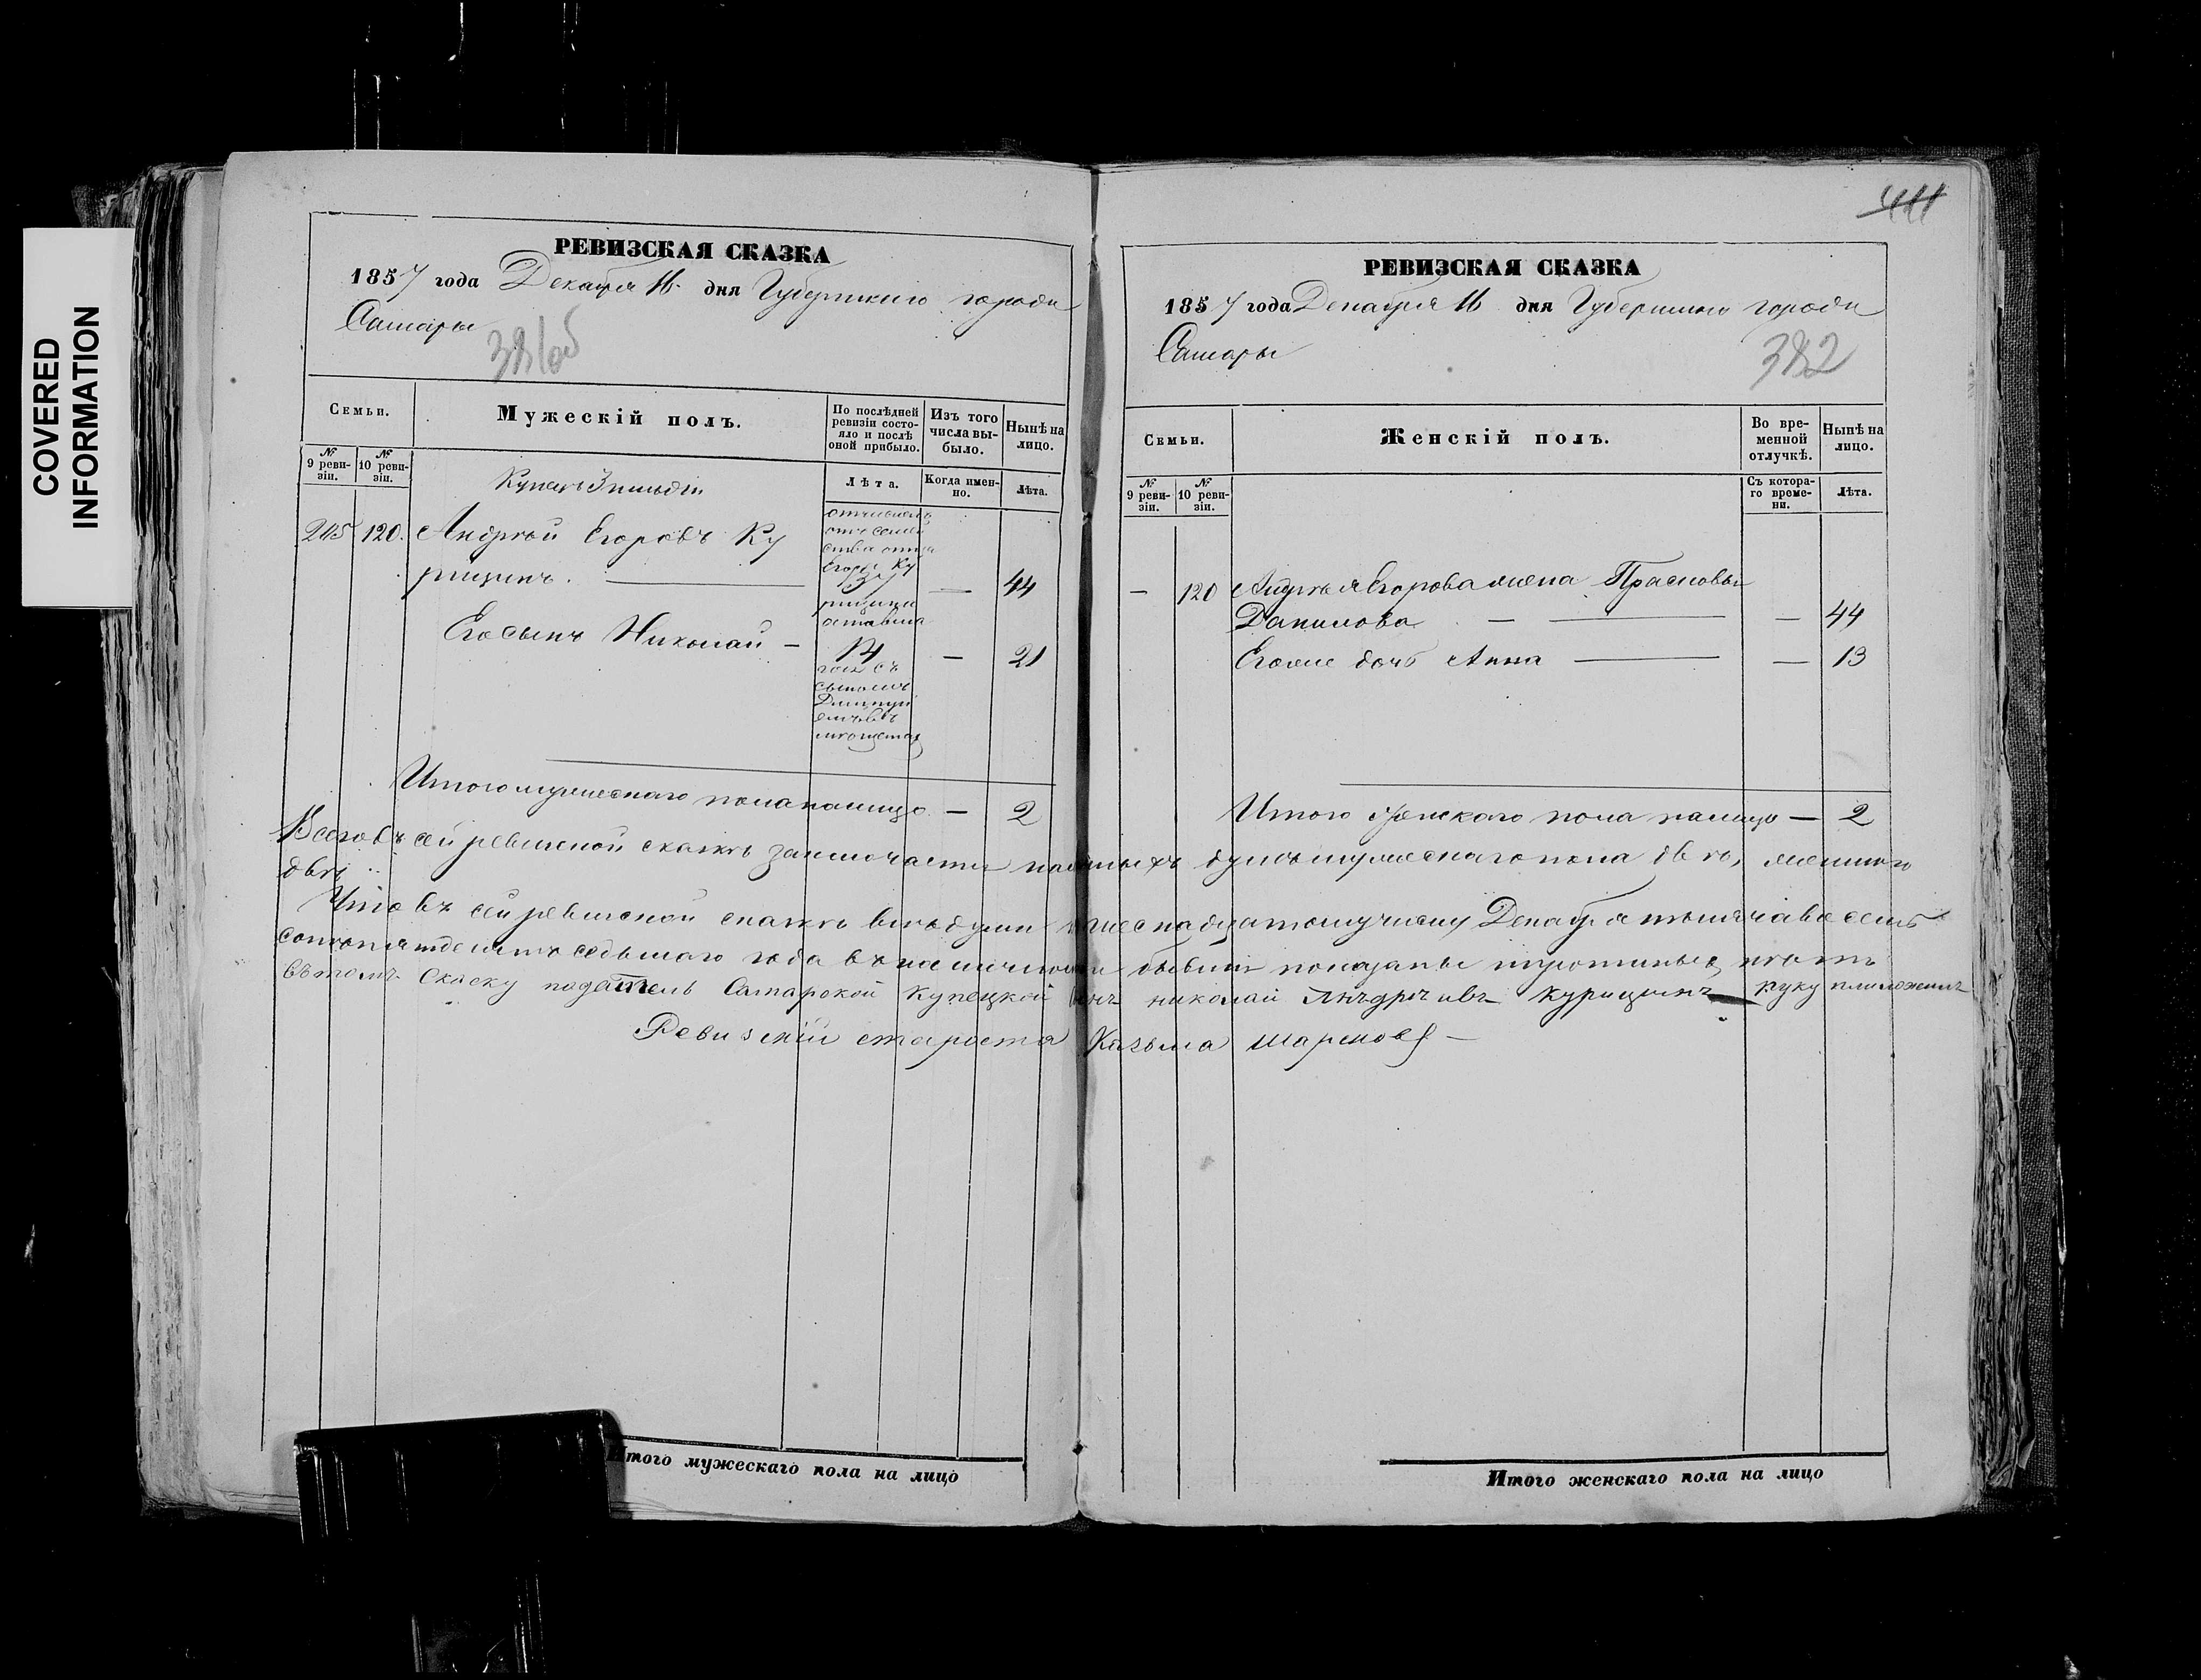 COVERED
INFORMATION
РЕВИЗСКАЯ СКАЗКА
1857 года Декабря 16 дня Губернскаго города
Самары
381об
Семьи.
Мужескій полъ.
По послѣдней ревизіи состояло и послѣ оной прибыло.
Изъ того числа выбыло.
Нынѣ на лицо.
№ 9 ревизіи.
№ 10 ревизіи.
Лѣта.
Когда именно.
Лѣта.
Купецъ 3 гильдіи
245 120. Андрей Егоровъ Ку
рицинъ. — 44
отъ семей
ства отца
Егора Ку
рицина
Его сынъ Николай — 21
съ
сыномъ
Итого мужескаго пола налицо — 2
411
РЕВИЗСКАЯ СКАЗКА
1857 года Декабря 16 дня Губернскаго города
Самары
382
Семьи.
Женскій полъ.
Во временной отлучкѣ.
Нынѣ на лицо.
№ 9 ревизіи.
№ 10 ревизіи.
Съ котораго времени.
Лѣта.
— 120 Андрея Егорова жена Прасковья
Данилова — — 44
Егоже дочь Анна — — 13
Итого женскаго пола налицо — 2
Всего въ сей ревизской сказкѣ заключается наличныхъ душъ мужескаго пола двѣ, женскаго
двѣ
Что въ сей ревизской сказкѣ всѣ души къ шеснадцатому числу Декабря тысяча восемь
сотъ пятдесятъ седьмаго года въ наличности бывшіе показаны и пропиныхъ нѣтъ
Вътомъ Скаску податель Самарской Купецкой сынъ николай Андреивъ Курицынъ руку приложилъ
Ревизскій староста Казьма Шарпов
Итого мужескаго пола на лицо
Итого женскаго пола на лицо